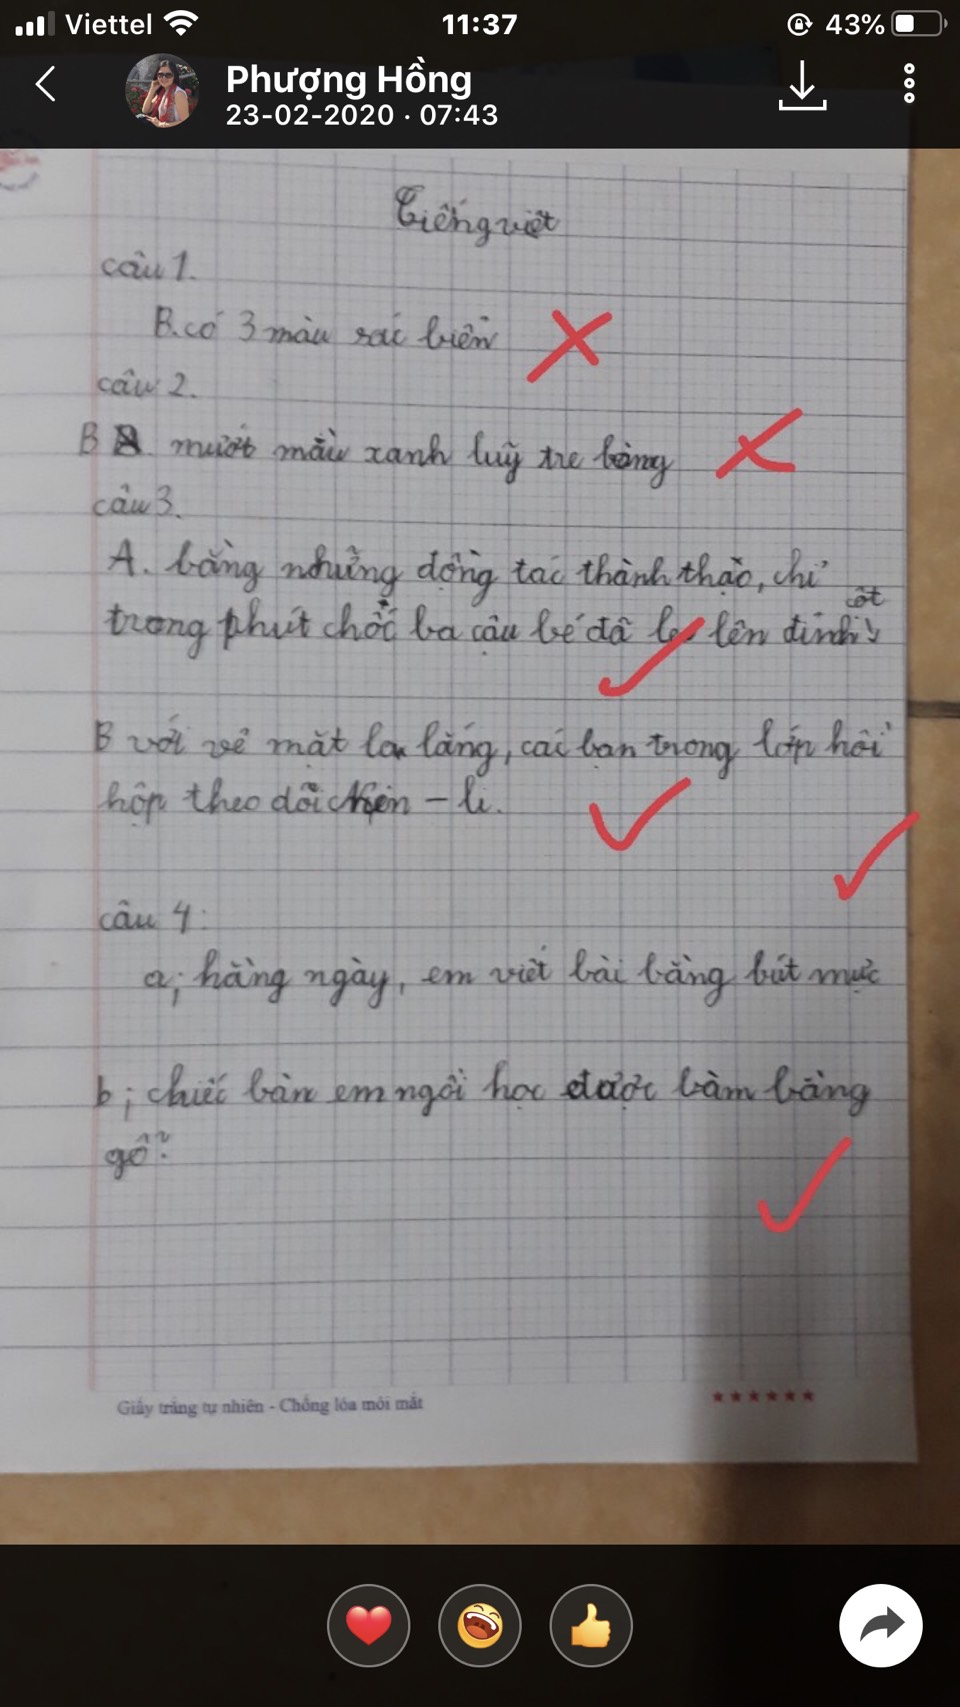 Viettel 11:37 43%
Phượng Hồng
23-02-2020 · 07:43
Tiếng việt
câu 1.
B. có 3 màu sắc biển
câu 2.
B mướt màu xanh luỹ tre làng
câu 3.
A. bằng những động tác thành thạo, chỉ
trong phút chốc ba cậu bé đã leo lên đỉnh cột
B với vẻ mặt lo lắng, các bạn trong lớp hồi
hộp theo dõi Nen - li.
câu 4:
a; hằng ngày, em viết bài bằng bút mực
b; chiếc bàn em ngồi học được làm bằng
gỗ
Giấy trắng tự nhiên - Chống lóa mỏi mắt